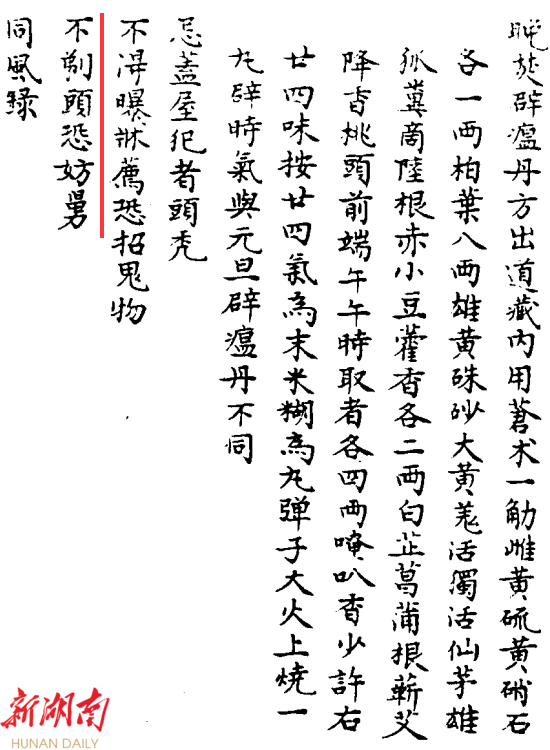 晚焚辟瘟丹方出道藏內用蒼朮一觔雌黃硫黃硝石
各一兩柏葉八兩雄黃硃砂大黃羗活獨活仙茅雄
狐糞商陸根赤小豆藿香各二兩白芷菖蒲根蘄艾
降香桃頭前端午午時取者各四兩唵叭香少許右
廿四味按廿四氣為末米糊為丸彈子大火上燒一
丸辟時氣與元旦辟瘟丹不同
忌蓋屋犯者頭禿
不淂曝牀薦恐招鬼物
不剃頭恐妨舅
同風錄
新湖南
HUNAN DAILY